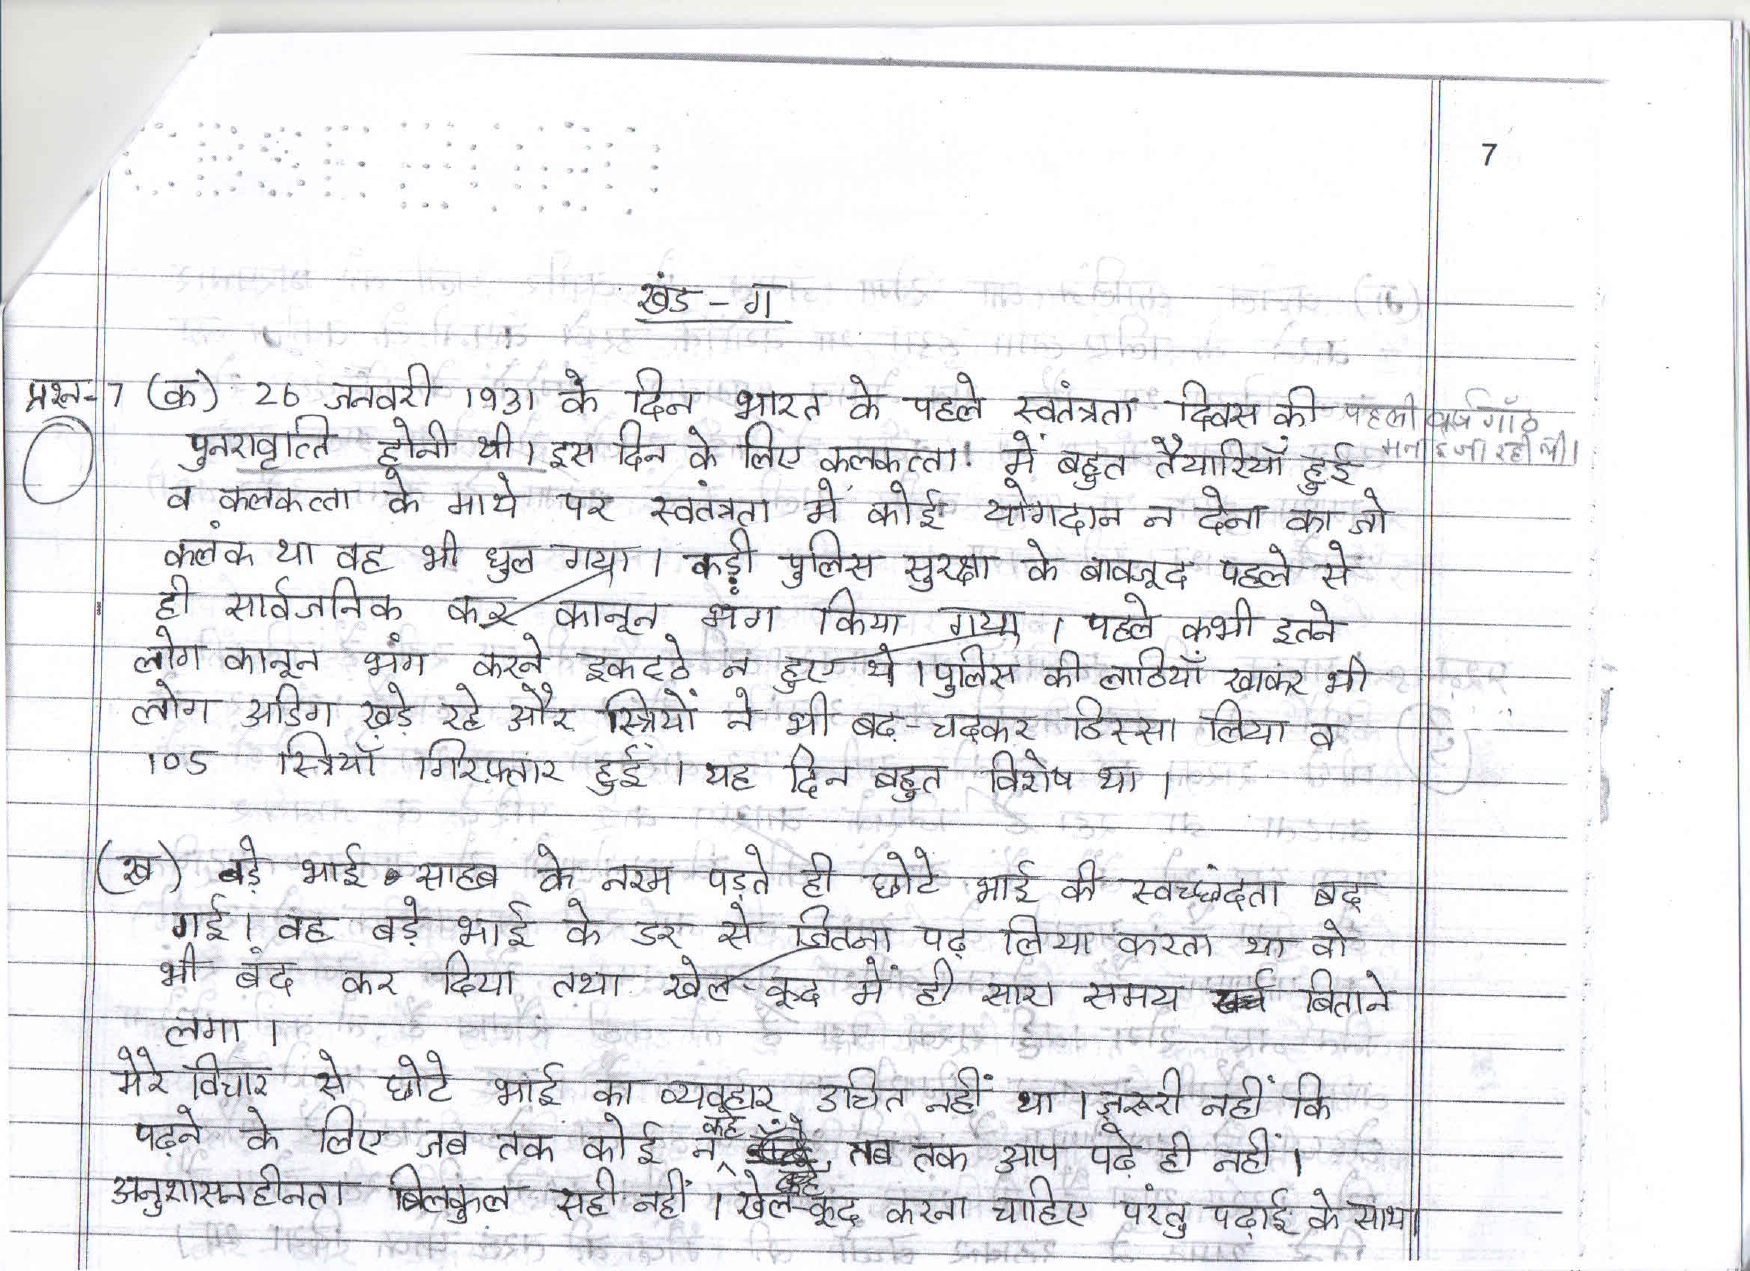 7
खंड - ग
प्रश्न-7 (क) 26 जनवरी 1931 के दिन भारत के पहले स्वतंत्रता दिवस की पहली वर्षगाँठ
मनाई जा रही थी।
पुनरावृत्ति होनी थी। इस दिन के लिए कलकत्ता में बहुत तैयारियाँ हुई
व कलकत्ता के माथे पर स्वतंत्रता में कोई योगदान न देना का जो
कलंक था वह भी धुल गया। कड़ी पुलिस सुरक्षा के बावजूद पहले से
ही सार्वजनिक कर कानून भंग किया गया। पहले कभी इतने
लोग कानून भंग करने इकट्ठे न हुए थे। पुलिस की लाठियाँ खाकर भी
लोग अडिग खड़े रहे और स्त्रियों ने भी बढ़-चढ़कर हिस्सा लिया व
105 स्त्रियाँ गिरफ़्तार हुई। यह दिन बहुत विशेष था।
(ख) बड़े भाई साहब के नरम पड़ते ही छोटे भाई की स्वच्छंदता बढ़
गई। वह बड़े भाई के डर से जितना पढ़ लिया करता था वो
भी बंद कर दिया तथा खेल-कूद में ही सारा समय बिताने
लगा।
मेरे विचार से छोटे भाई का व्यवहार उचित नहीं था। ज़रूरी नहीं कि
पढ़ने के लिए जब तक कोई न कहे तब तक आप पढ़े ही नहीं।
अनुशासनहीनता बिलकुल सही नहीं। खेल-कूद करना चाहिए परंतु पढ़ाई के साथ।